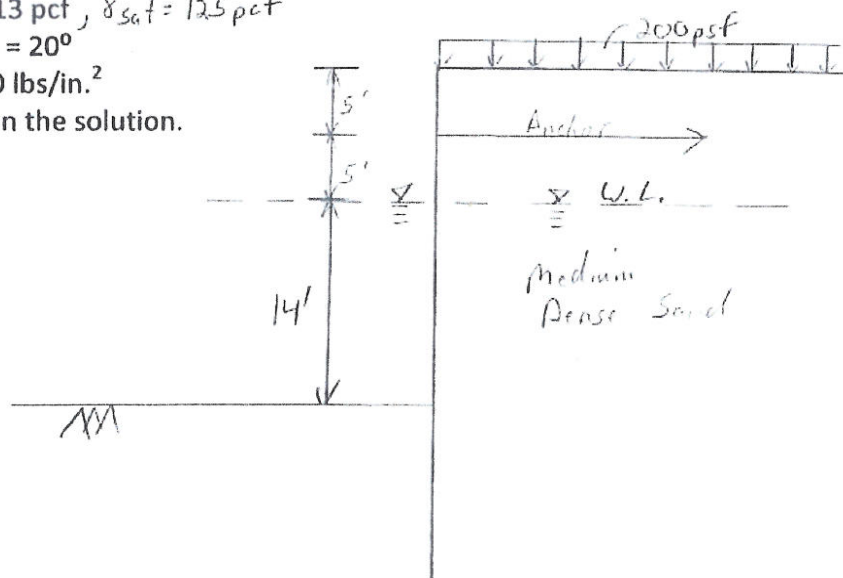 13 pcf, γsat = 125 pcf
= 20⁰
0 lbs/in.²
n the solution.
200 psf
5'
Anchor
5'
W.L.
14'
Medium
Dense Sand